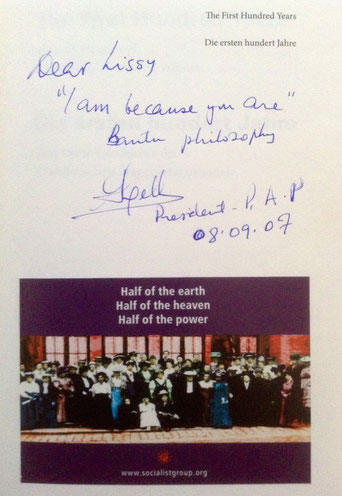 The First Hundred Years
Die ersten hundert Jahre
Dear Lissy
"I am because you are"
Bantu philosophy
President - P. A. P
08.09.07
Half of the earth
Half of the heaven
Half of the power
www.socialistgroup.org